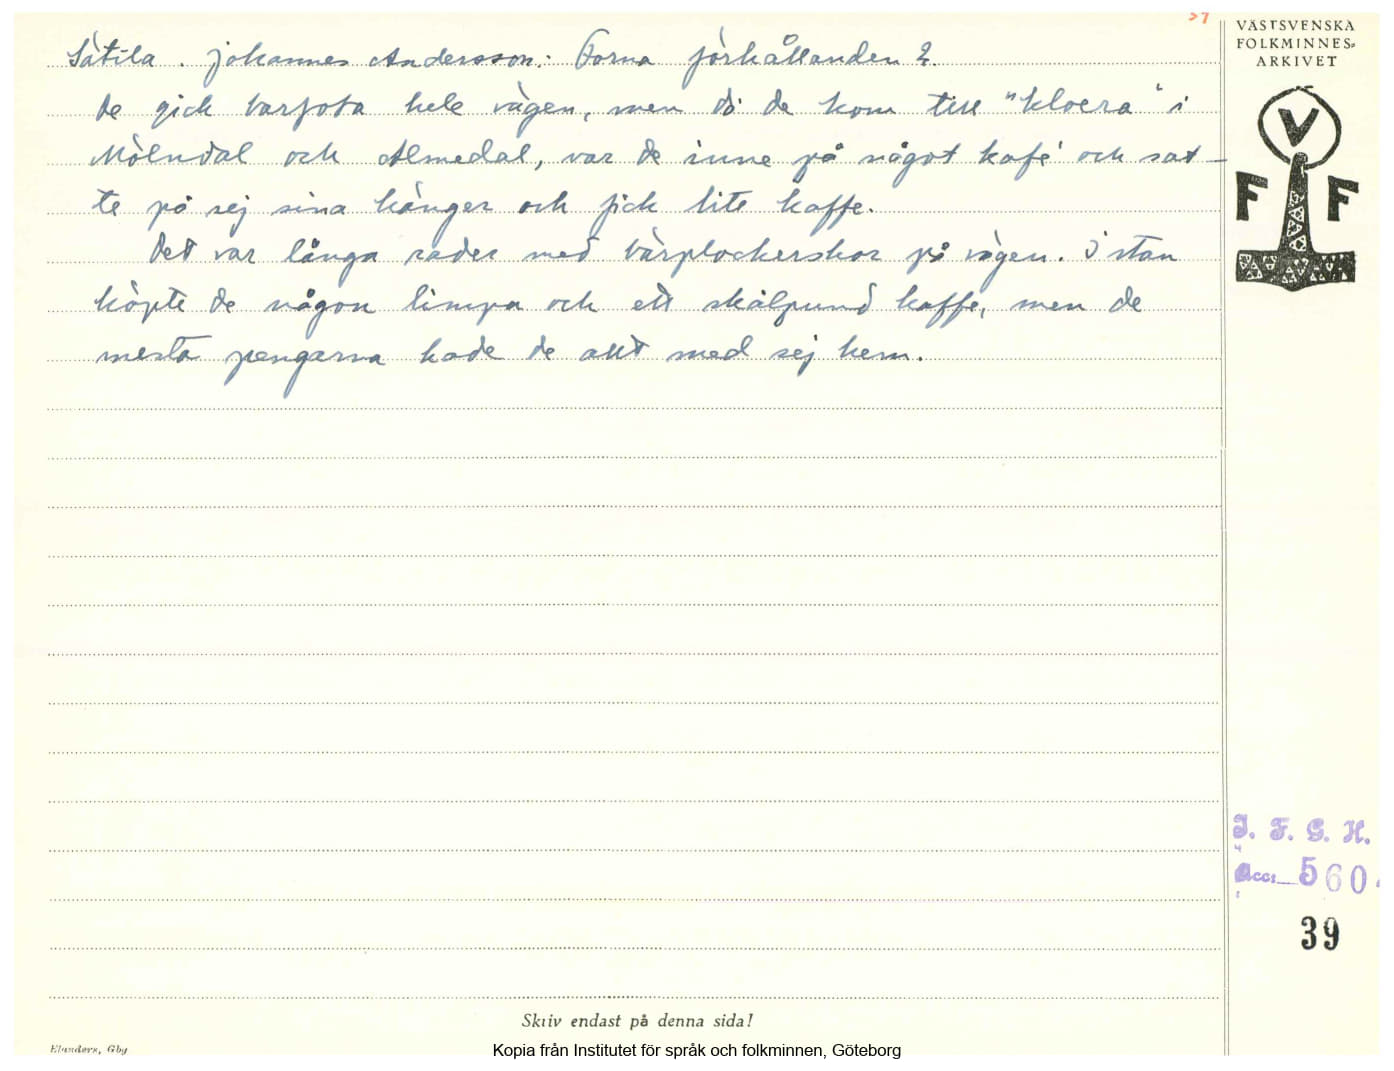 Sätila. Johannes Andersson: Forna förhållanden 2.
de gick barfota hele vägen, men då de kom till "kloera" i
Mölndal och Almedal, var de inne på något kafé och sat-
te på sej sina känger och fick lite kaffe.
Det var långa rader med bärplockerskor på vägen. I stan
köpte de någon limpa och ett skålpund kaffe, men de
mesta pengarna hade de allt med sej hem.
VÄSTSVENSKA
FOLKMINNES-
ARKIVET
V
F F
I. F. G. H.
Acc: 560
39
Skriv endast på denna sida!
Elanders, Gbg
Kopia från Institutet för språk och folkminnen, Göteborg